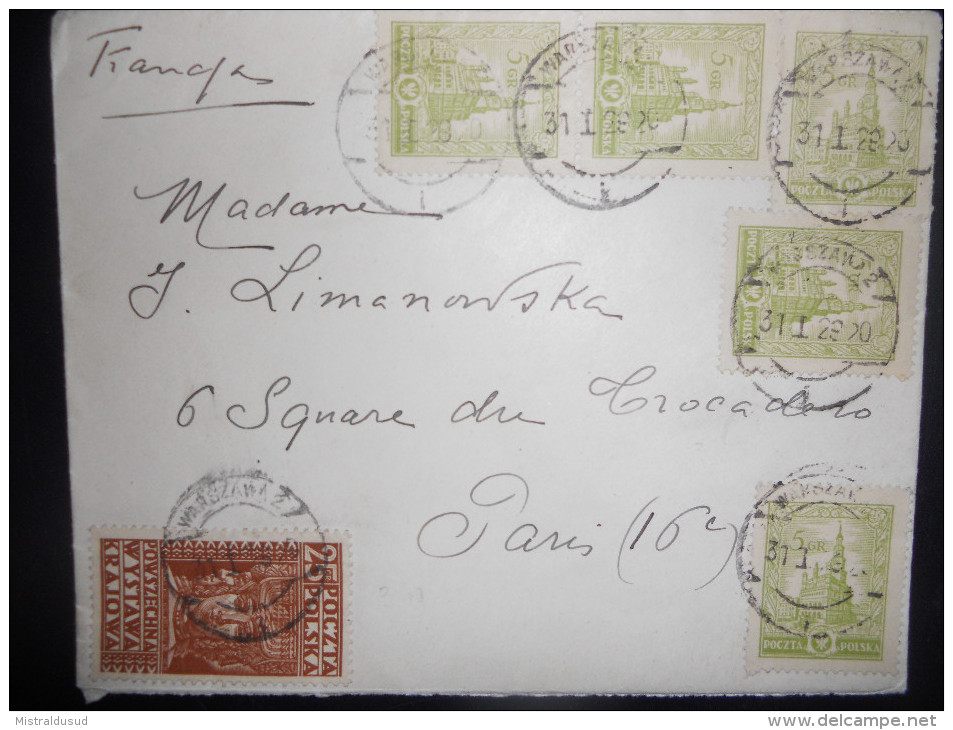 Francja
Madame
J. Limanowska
6 Square du Trocadero
Paris (16e)
5 GR.
POCZTA POLSKA
5 GR.
POCZTA POLSKA
5 GR.
POCZTA POLSKA
POCZTA POLSKA
5 GR.
POCZTA POLSKA
WARSZAWA 2
31 I 29 20
WARSZAWA 2
31 I 29 20
WARSZAWA 2
31 I 29 20
WARSZAWA 2
25 POCZTA POLSKA
POWSZECHNA
WYSTAWA
KRAJOWA
Mistraldusud
www.delcampe.net